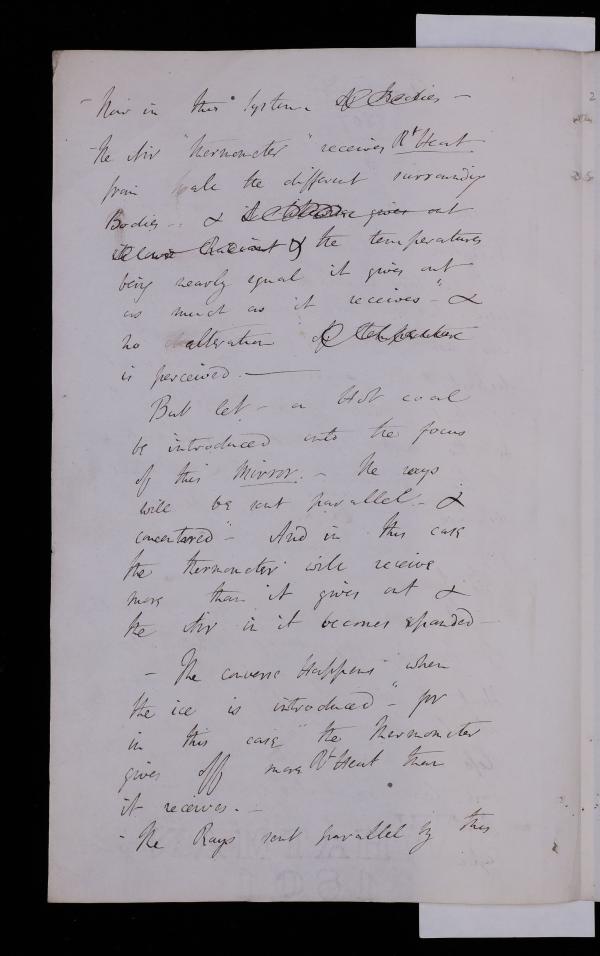 - Now in this System of Bodies -
- The Air "thermometer" receives Rt Heat
from all the different surrounding
Bodies - & it likewise gives out
its own Radiant & the temperatures
being nearly equal it gives out
as much as it receives" - &
no alteration of temperature
is perceived. -
But let - a Hot coal
be introduced into the focus
of this Mirror. - The rays
will be sent parallel - &
concentered" - And in this case
the thermometer will receive
more than it gives out &
the Air in it becomes expanded -
- The converse Happens" when
the ice is introduced" - for
in this case" the thermometer
gives off more Rt Heat than
it receives. -
- The Rays sent parallel by this